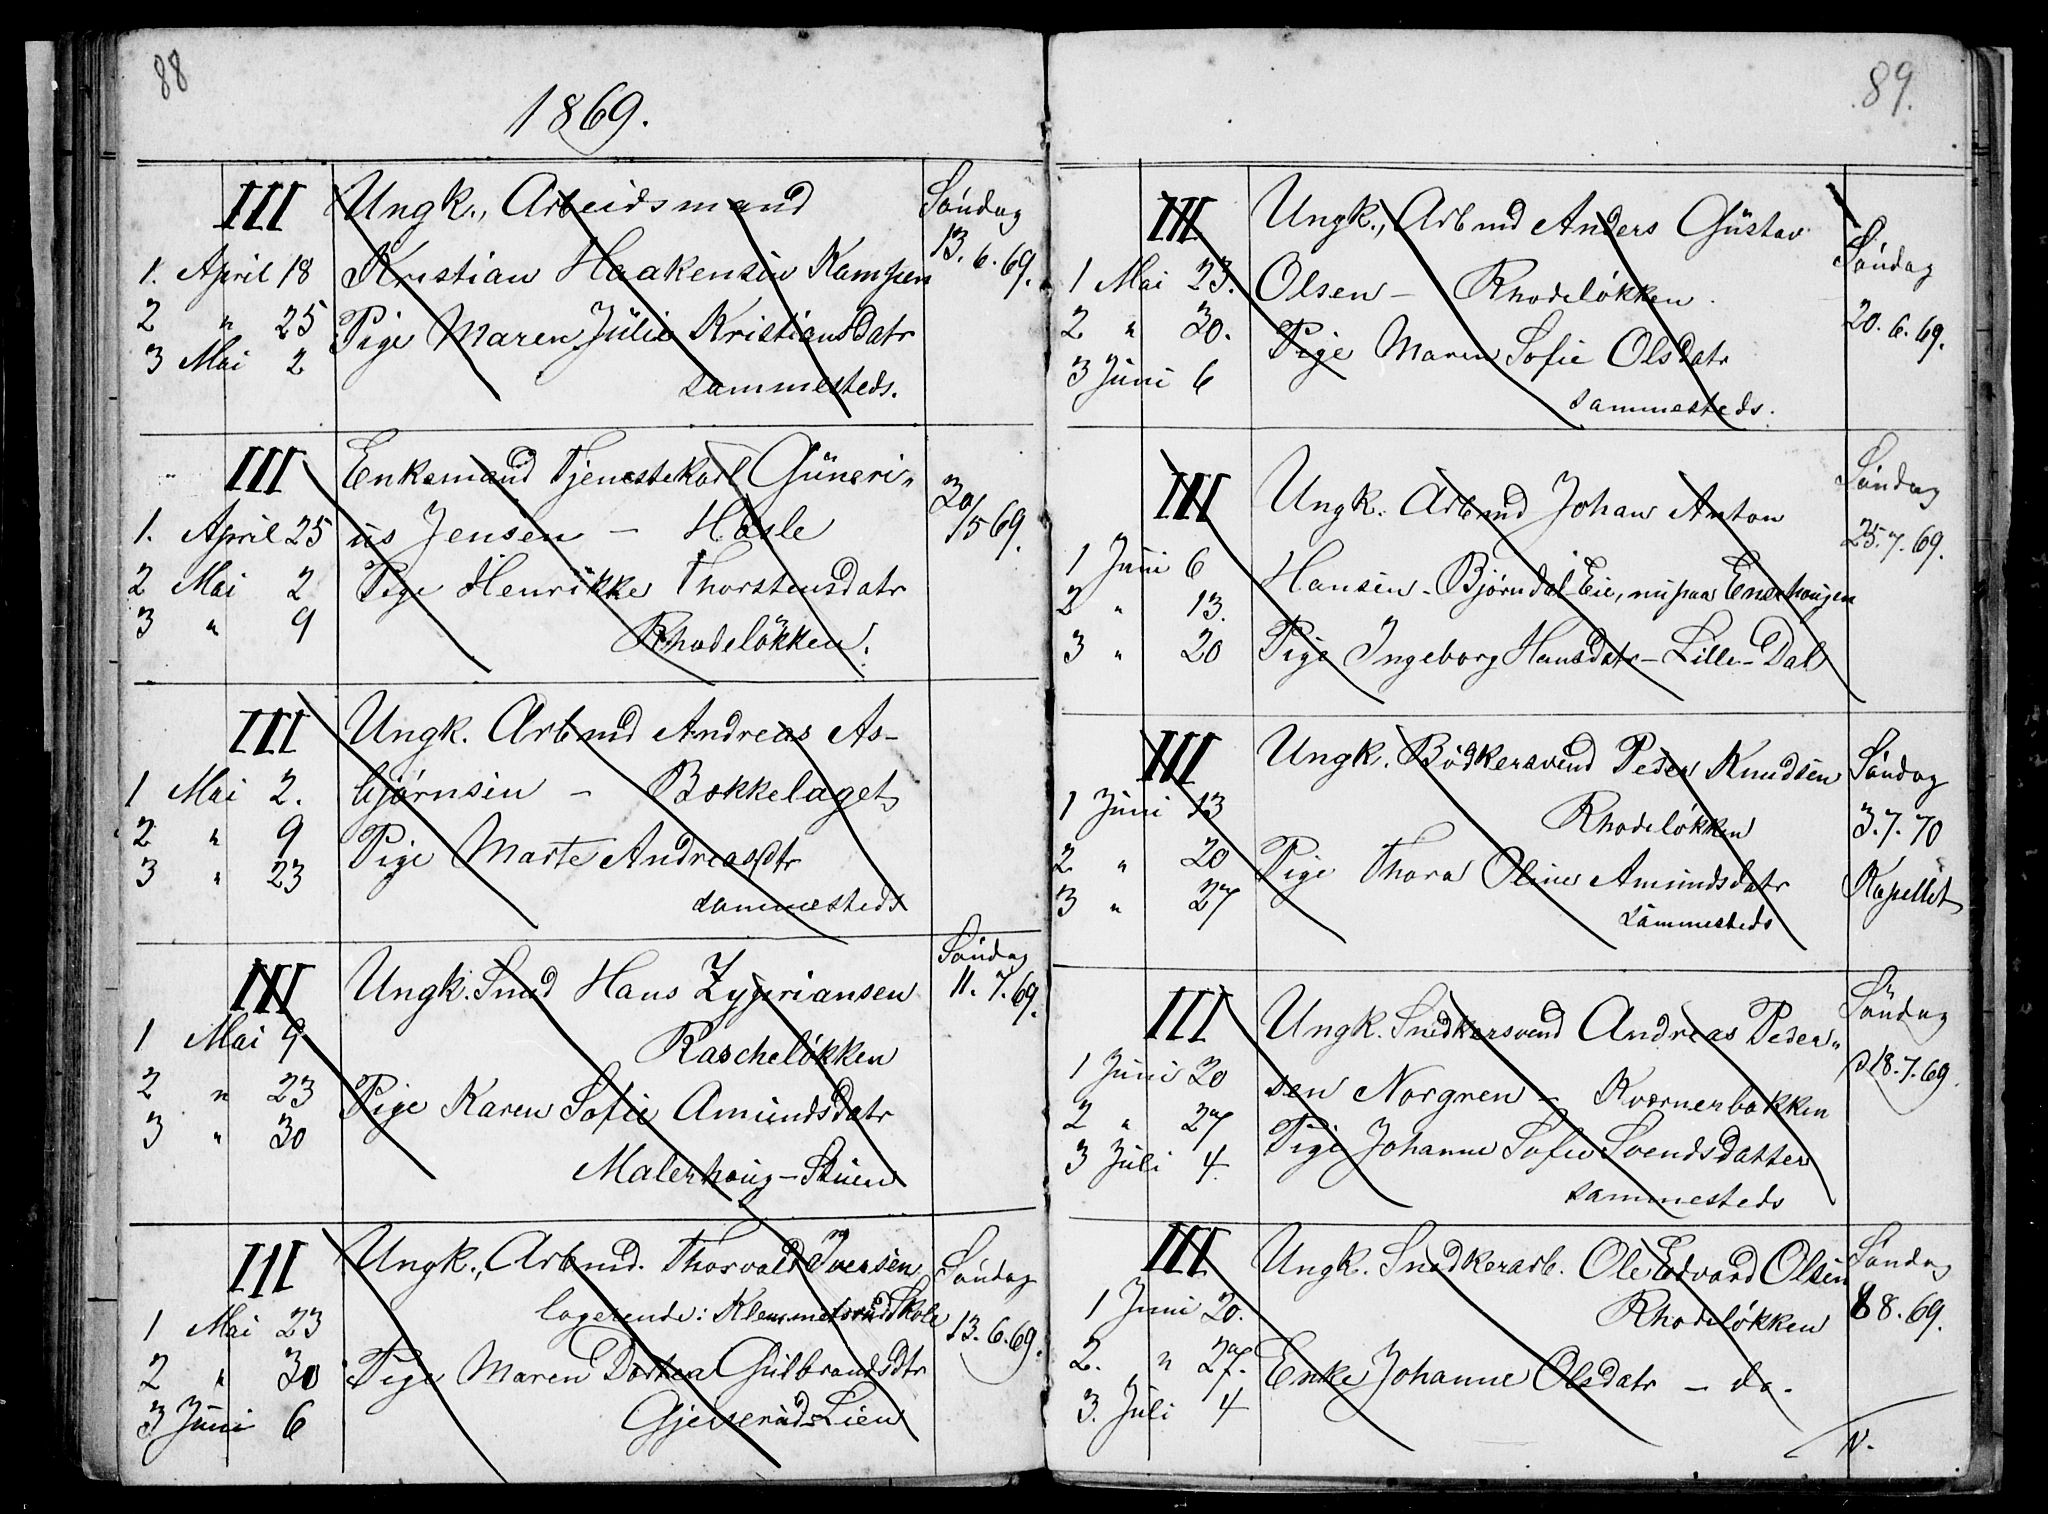 88
1869.
III
Ungk., Arbeidsmand
Søndag
13.6.69.
1. April 18
Kristian Haakensen Kampen
2 " 25
Pige Maren Julie Kristiansdatr
3 Mai 2
sammesteds.
III
Enkemand Tjenestekarl Guneri„
30/5 69.
1. April 25
us Jensen – Hasle
2 Mai 2
Pige Henrikke Thorstensdatr
3 " 9
Rhodeløkken.
III
Ungk. Arbmd Andreas As-
1 Mai 2.
bjørnsen – Bækkelaget
2 " 9
Pige Marte Andreasdtr
3 " 23
sammesteds
III
Ungk. Smed Hans Zyprianssen
Søndag
11.7.69.
1 Mai 9
Rascheløkken
2 " 23
Pige Karen Sofie Amundsdatr
3 " 30
Malerhaug-Stuen
III
Ungk., Arbmd. Thorvald Iversen
Søndag
logerende: Klemmetsrud Skole
13.6.69.
1 Mai 23
2 " 30
Pige Maren Dortea Gulbrandsdtr
3 Juni 6
Gjerserud-Lien
89.
III
Ungk., Arbmd Anders Gustav
Søndag
1 Mai 23.
Olsen – Rhodeløkken.
20.6.69.
2 " 30.
Pige Maren Sofie Olsdatr
3 Juni 6
sammesteds.
III
Ungk. Arbmd Johan Anton
Søndag
25.7.69.
1 Juni 6
Hansen – Bjørndal-Eie, nu paa Enerhaugen
2 " 13.
3 " 20
Pige Ingeborg Hansdatr – Lille-Dal
III
Ungk. Bødkersvend Peder Knudsen
Søndag
1 Juni 13
Rhodeløkken
3.7.70
2 " 20
Pige Thora Oline Amundsdatr
Kapellet
3 " 27
sammesteds
III
Ungk. Snedkersvend Andreas Peder„
Søndag
1 Juni 20
sen Norgren – Kværnerbakken
18.7.69.
2 " 27
Pige Johanne Sofie Svendsdatter
3 Juli 4
sammesteds
III
Ungk. Snedkerarb. Ole Edvard Olsen
Søndag
1 Juni 20.
Rhodeløkken
8.8.69.
2. " 27.
Enke Johanne Olsdatr – do.
3. Juli 4
N.